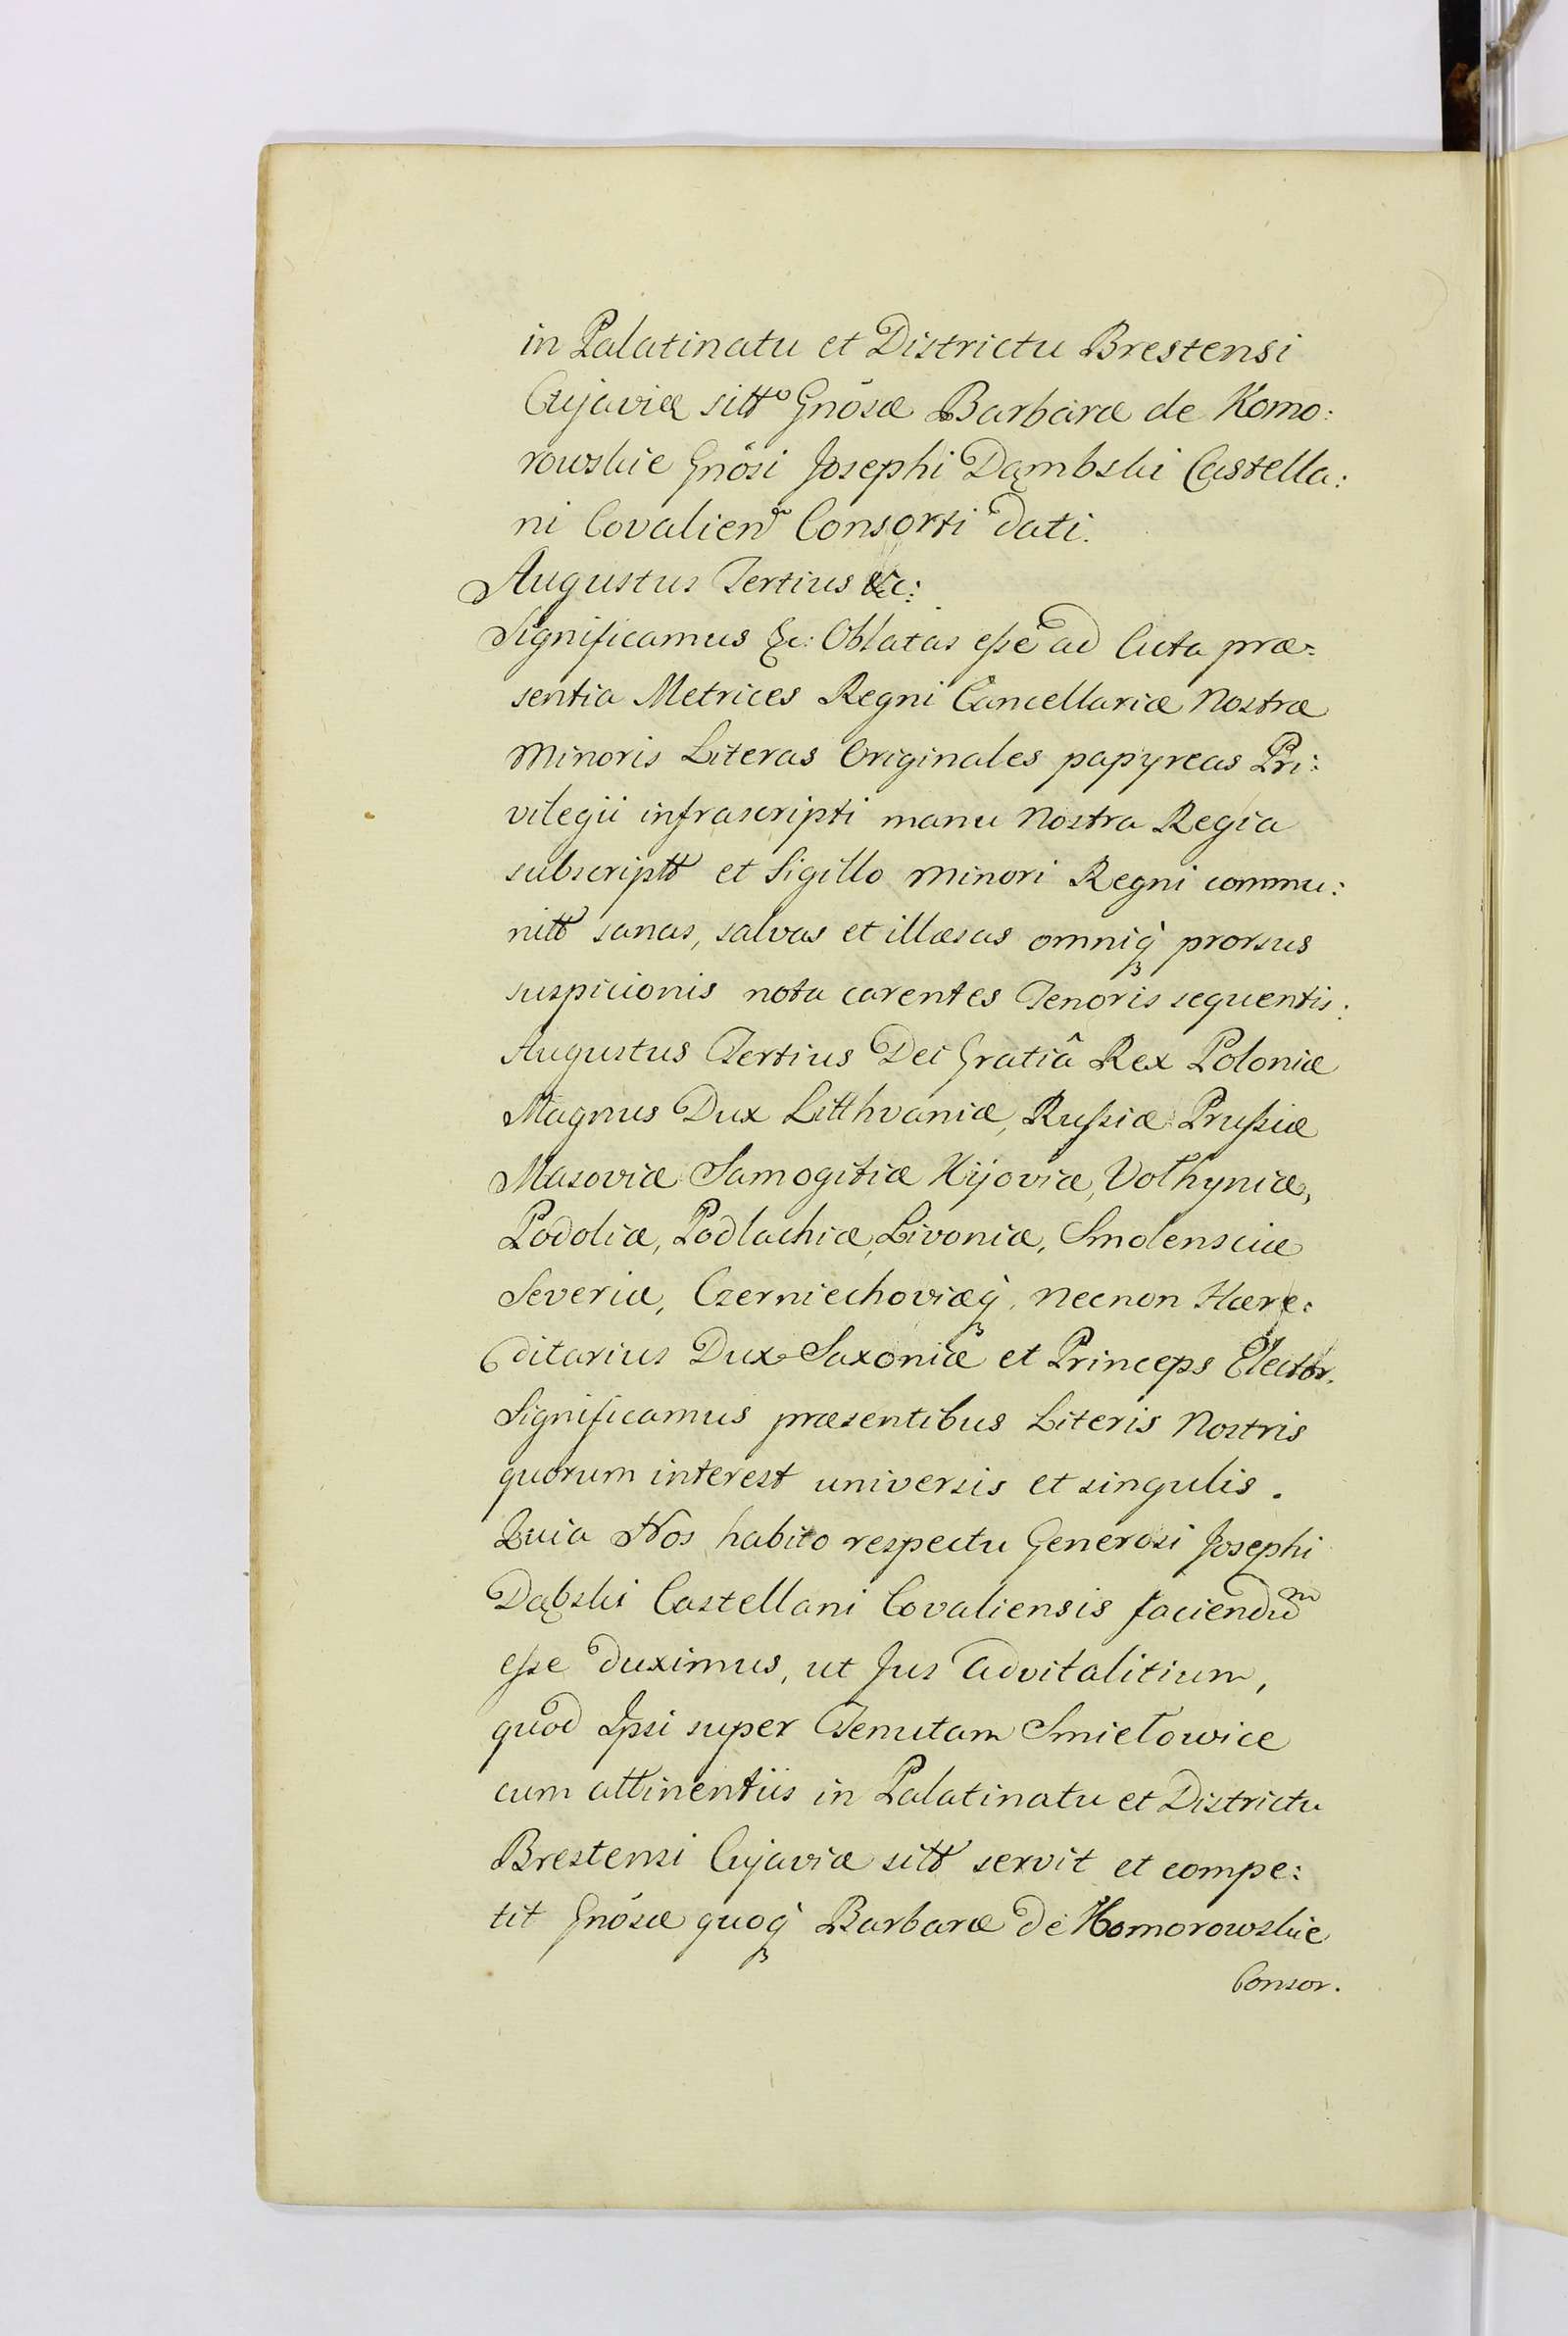 in Palatinatu et Districtu Brestensi
Cujaviæ sitto Gnõsæ Barbaræ de Komo:
rowskie Gnõsi Josephi Dąmbski Castella:
ni Covalien Consorti dati.
Augustus Tertius &c:
Significamus &c: Oblatas eße ad Acta præ=
sentia Metrices Regni Cancellariæ Nostræ
Minoris Literas Originales papyreas Pri:
vilegii infrascripti manu Nostra Regia
subscriptt et Sigillo minori Regni commu:
nitt sanas, salvas et illæsas omniq́ʒ prorsus
suspicionis nota carentes Tenoris sequentis:
Augustus Tertius Dei Gratiâ Rex Poloniæ
Magnus Dux Litthvaniæ, Rußiæ Prußiæ
Masoviæ Samogitiæ Kijoviæ, Volhyniæ,
Podoliæ, Podlachiæ, Livoniæ, Smolensciæ
Severiæ, Czerniechoviæq́ʒ, necnon Hære:
ditarius Dux Saxoniæ et Princeps Elector.
Significamus præsentibus Literis Nostris
quorum interest universis et singulis.
Quia Nos habito respectu Generosi Josephi
Dąbski Castellani Covaliensis faciendum
eße duximus, ut Jus Advitalitium,
quod Ipsi super Tenutam Smiełowice
cum attinentiis in Palatinatu et Districtu
Brestensi Cujaviæ sitt servit et compe:
tit Gnõsæ quoq́ʒ Barbaræ de Komorowskie
Consor.